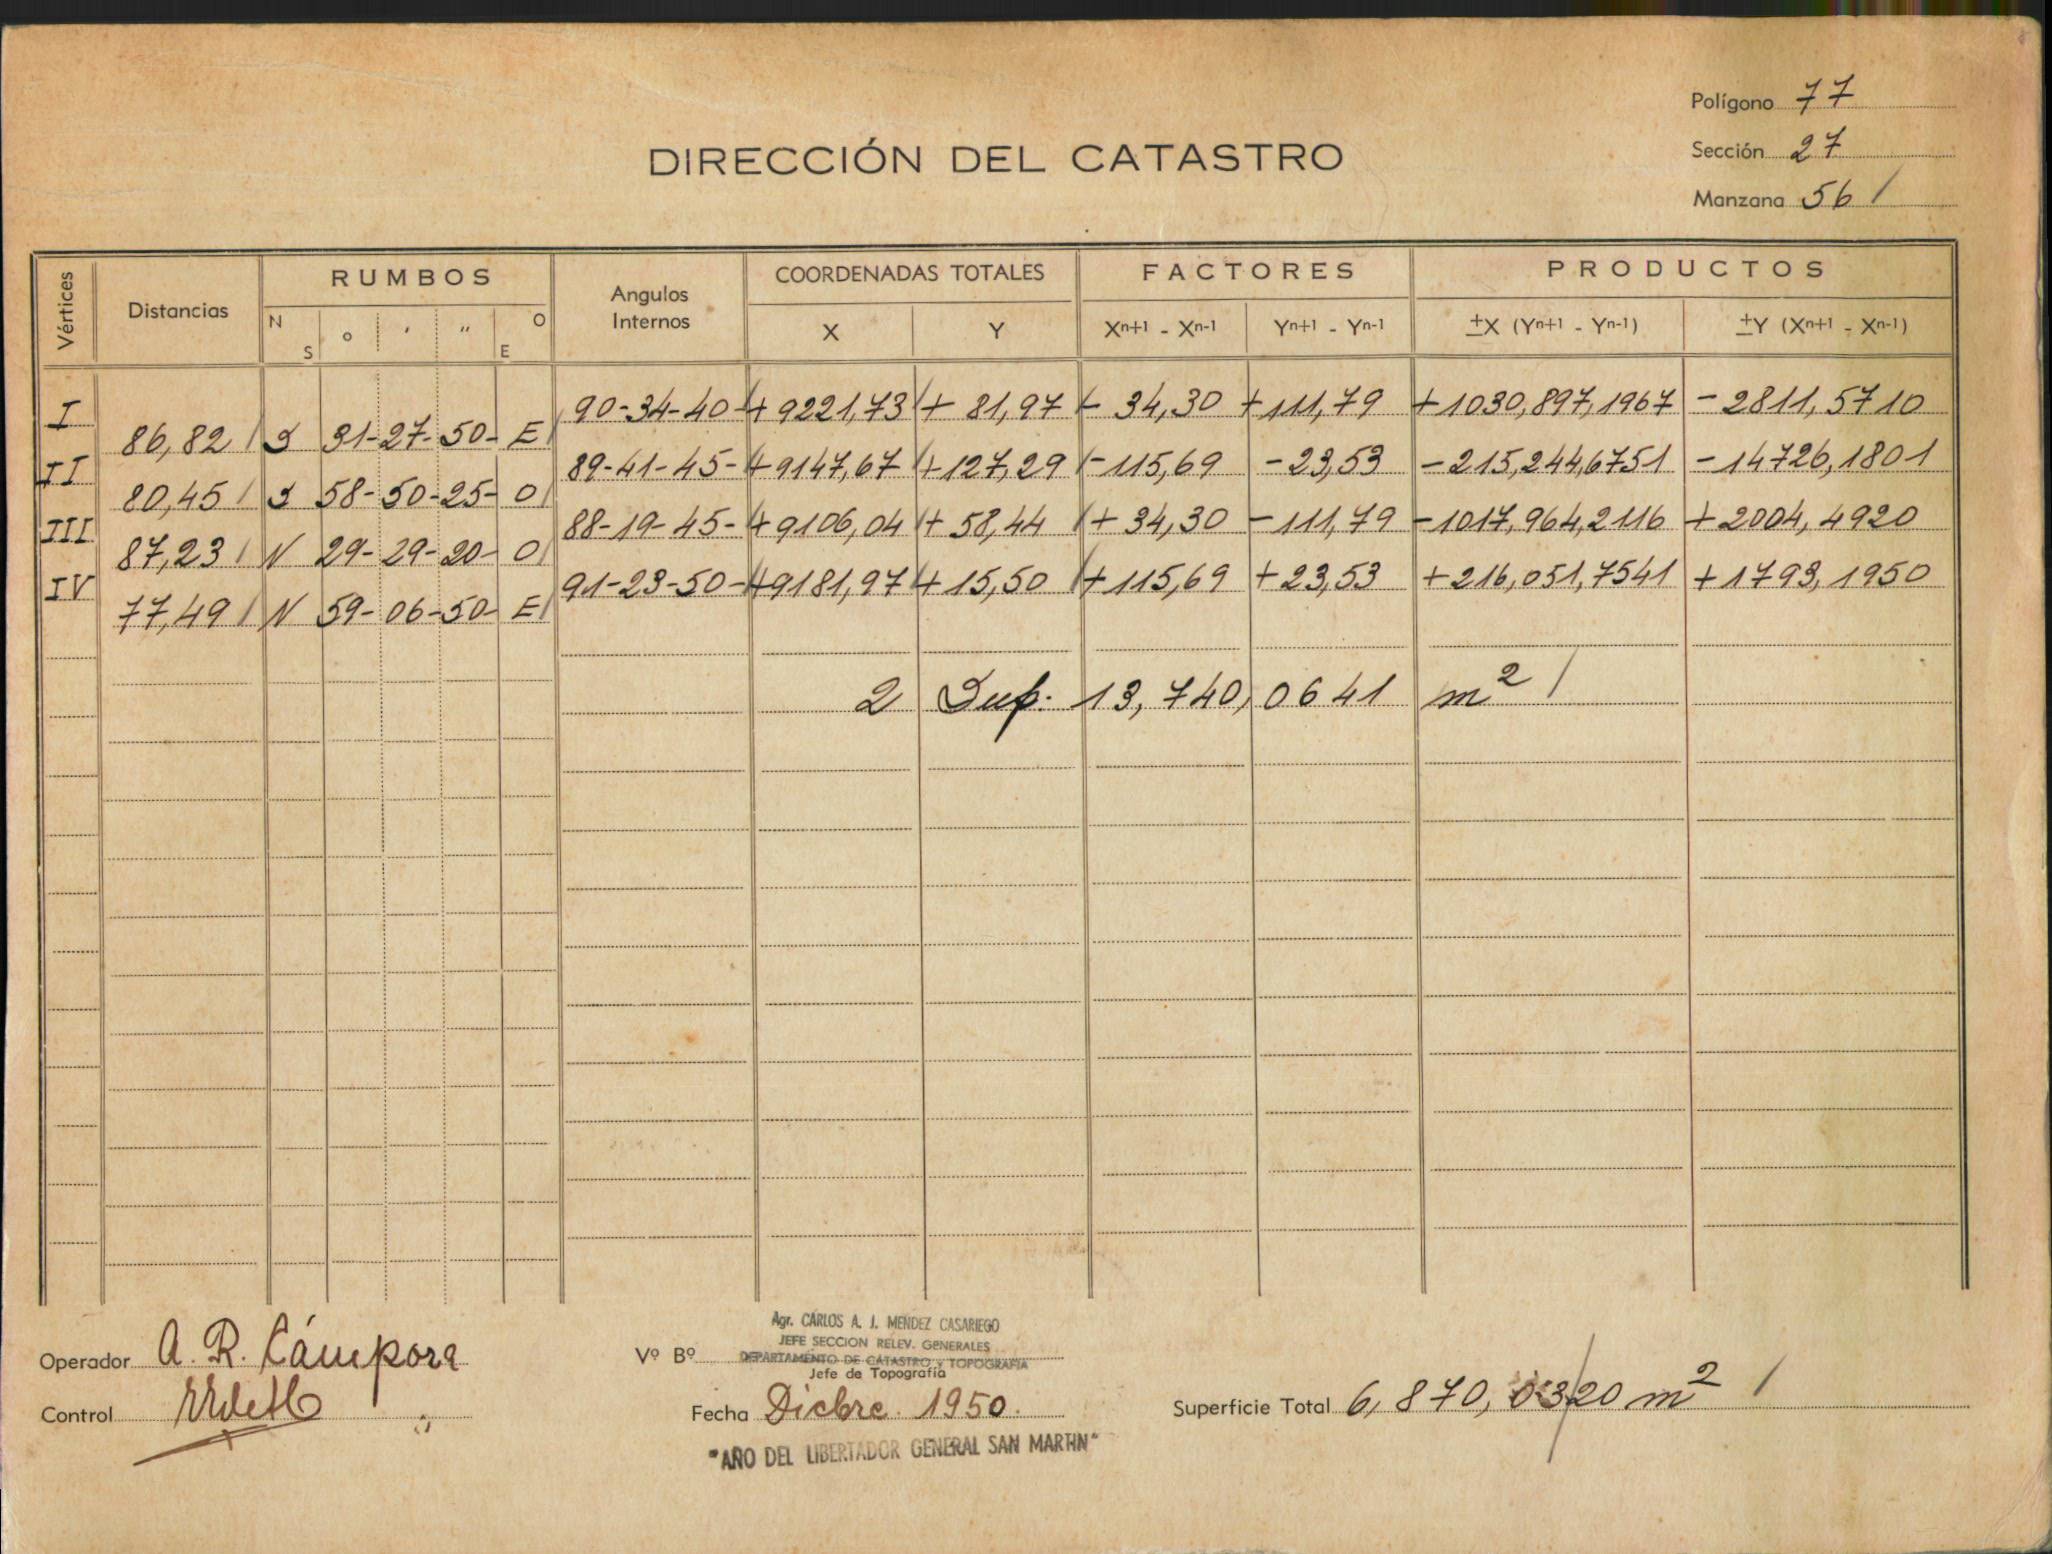 Polígono 77
DIRECCIÓN DEL CATASTRO
Sección 27
Manzana 56 /
Vértices
Distancias
RUMBOS
N S o ' " O E
Angulos Internos
COORDENADAS TOTALES
X Y
FACTORES
Xn+1 - Xn-1 Yn+1 - Yn-1
PRODUCTOS
±X (Yn+1 - Yn-1) ±Y (Xn+1 - Xn-1)
I 90-34-40- +9221,73 /+ 81,97 /- 34,30 +111,79 +1030,897,1967 -2811,5710
86,82 / S 31-27-50- E/
II 89-41-45- +9147,67 /+127,29 /-115,69 -23,53 -215,244,6751 -14726,1801
80,45 / S 58-50-25- O/
III 88-19-45- +9106,04 /+ 58,44 /+ 34,30 -111,79 -1017,964,2116 +2004,4920
87,23 / N 29-29-20- O/
IV 91-23-50- +9181,97 /+ 15,50 /+115,69 +23,53 +216,051,7541 +1793,1950
77,49 / N 59-06-50- E/
2 Sup. 13,740,0641 m² /
Operador A. R. Cámpora
Vº Bº
Agr. CARLOS A. J. MENDEZ CASARIEGO
JEFE SECCION RELEV. GENERALES
DEPARTAMENTO DE CATASTRO y TOPOGRAFIA
Jefe de Topografía
Control
Fecha Dicbre. 1950.
Superficie Total 6,870,0320 m² /
"AÑO DEL LIBERTADOR GENERAL SAN MARTIN"